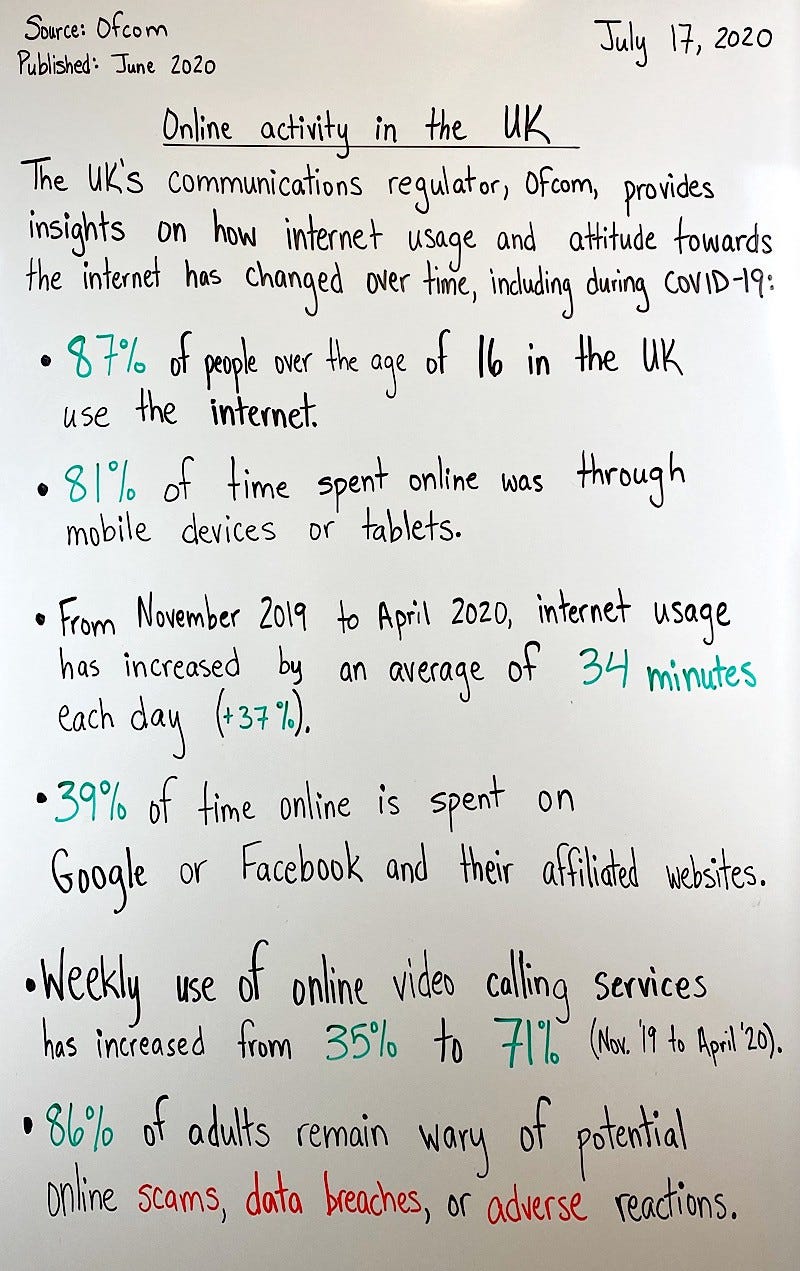 Source: Ofcom
Published: June 2020
July 17, 2020
Online activity in the UK
The UK's communications regulator, Ofcom, provides
insights on how internet usage and attitude towards
the internet has changed over time, including during COVID-19:
• 87% of people over the age of 16 in the UK
use the internet.
• 81% of time spent online was through
mobile devices or tablets.
• From November 2019 to April 2020, internet usage
has increased by an average of 34 minutes
each day (+37%).
• 39% of time online is spent on
Google or Facebook and their affiliated websites.
• Weekly use of online video calling services
has increased from 35% to 71% (Nov. '19 to April '20).
• 86% of adults remain wary of potential
online scams, data breaches, or adverse reactions.